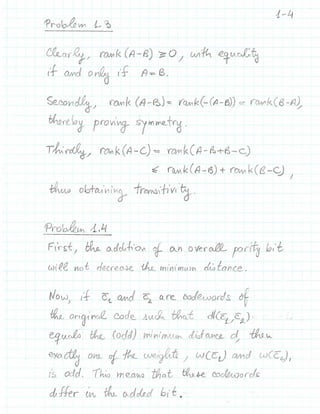 1-4
Problem 1.3
Clearly, rank (A-B) ≥ 0, with equality
if and only if A=B.
Secondly, rank (A-B) = rank(-(A-B)) = rank(B-A),
thereby proving symmetry.
Thirdly, rank(A-C) = rank(A-B+B-C)
≤ rank(A-B) + rank(B-C),
thus obtaining transitivity.
Problem 1.4
First, the addition of an overall parity bit
will not decrease the minimum distance.
Now, if c̄₁ and c̄₂ are codewords of
the original code such that d(c̄₁,c̄₂)
equals the (odd) minimum distance d, then
exactly one of the weights, w(c̄₁) and w(c̄₂),
is odd. This means that these codewords
differ in the added bit.